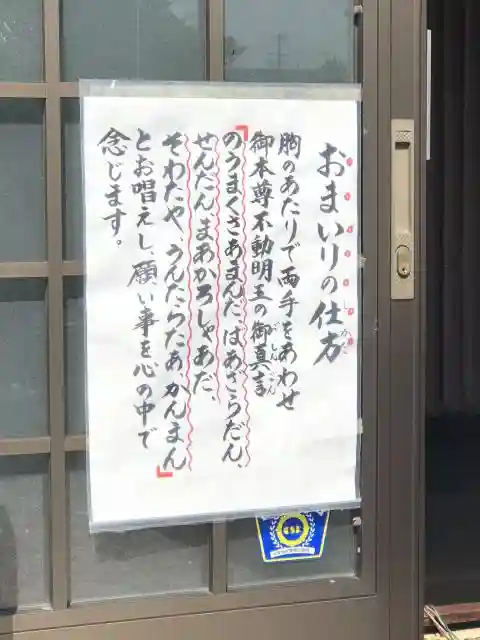 おまいりの仕方
胸のあたりで両手をあわせ
御本尊不動明王の御真言
「のうまくさあまんだ、ばあざらだん、
せんだん、まあかろしゃあだ、
そわたや、うんたらたあ、かんまん」
とお唱えし、願い事を心の中で
念じます。